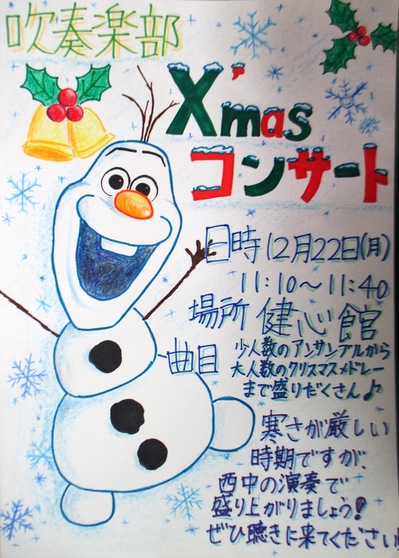 吹奏楽部
X'mas
コンサート
日時 12月22日(月)
11:10〜11:40
場所 健心館
曲目 少人数のアンサンブルから
大人数のクリスマスメドレー
まで盛りだくさん♪
寒さが厳しい
時期ですが、
西中の演奏で
盛り上がりましょう!
ぜひ聴きに来てください!